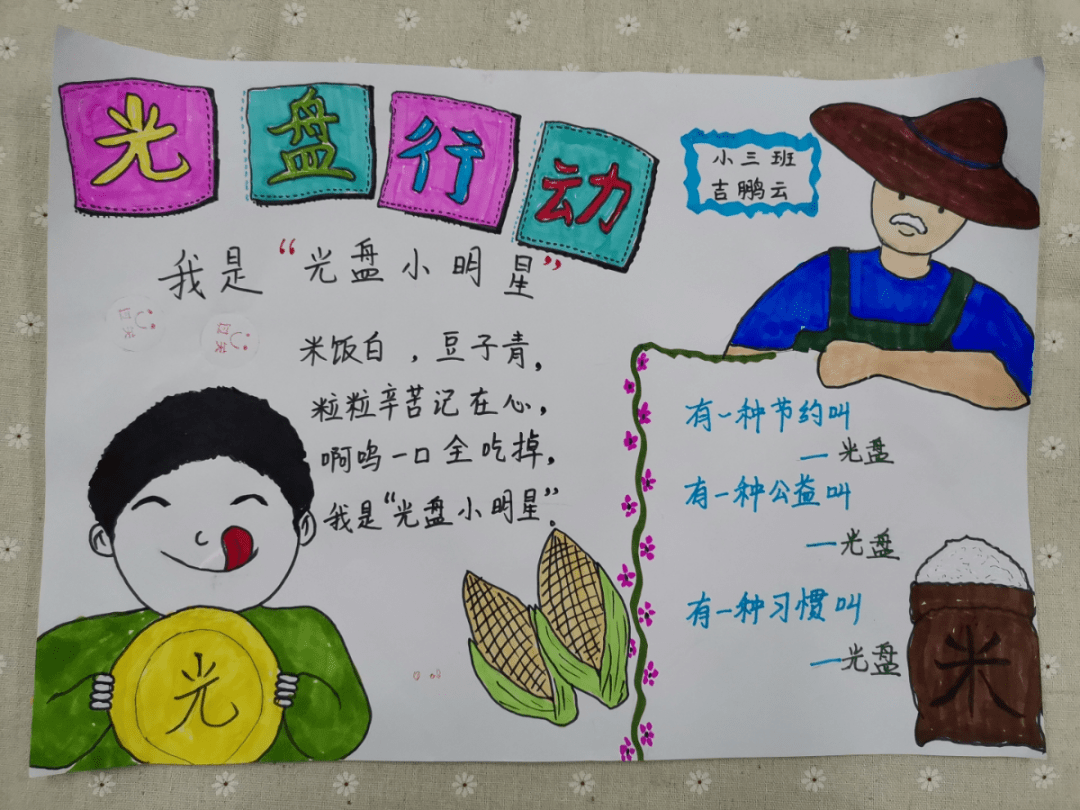 光盘行动
小三班
吉鹏云
我是“光盘小明星”
过关
过关
米饭白，豆子青，
粒粒辛苦记在心，
啊呜一口全吃掉，
我是“光盘小明星”。
光
有一种节约叫
—光盘
有一种公益叫
—光盘
有一种习惯叫
—光盘
米